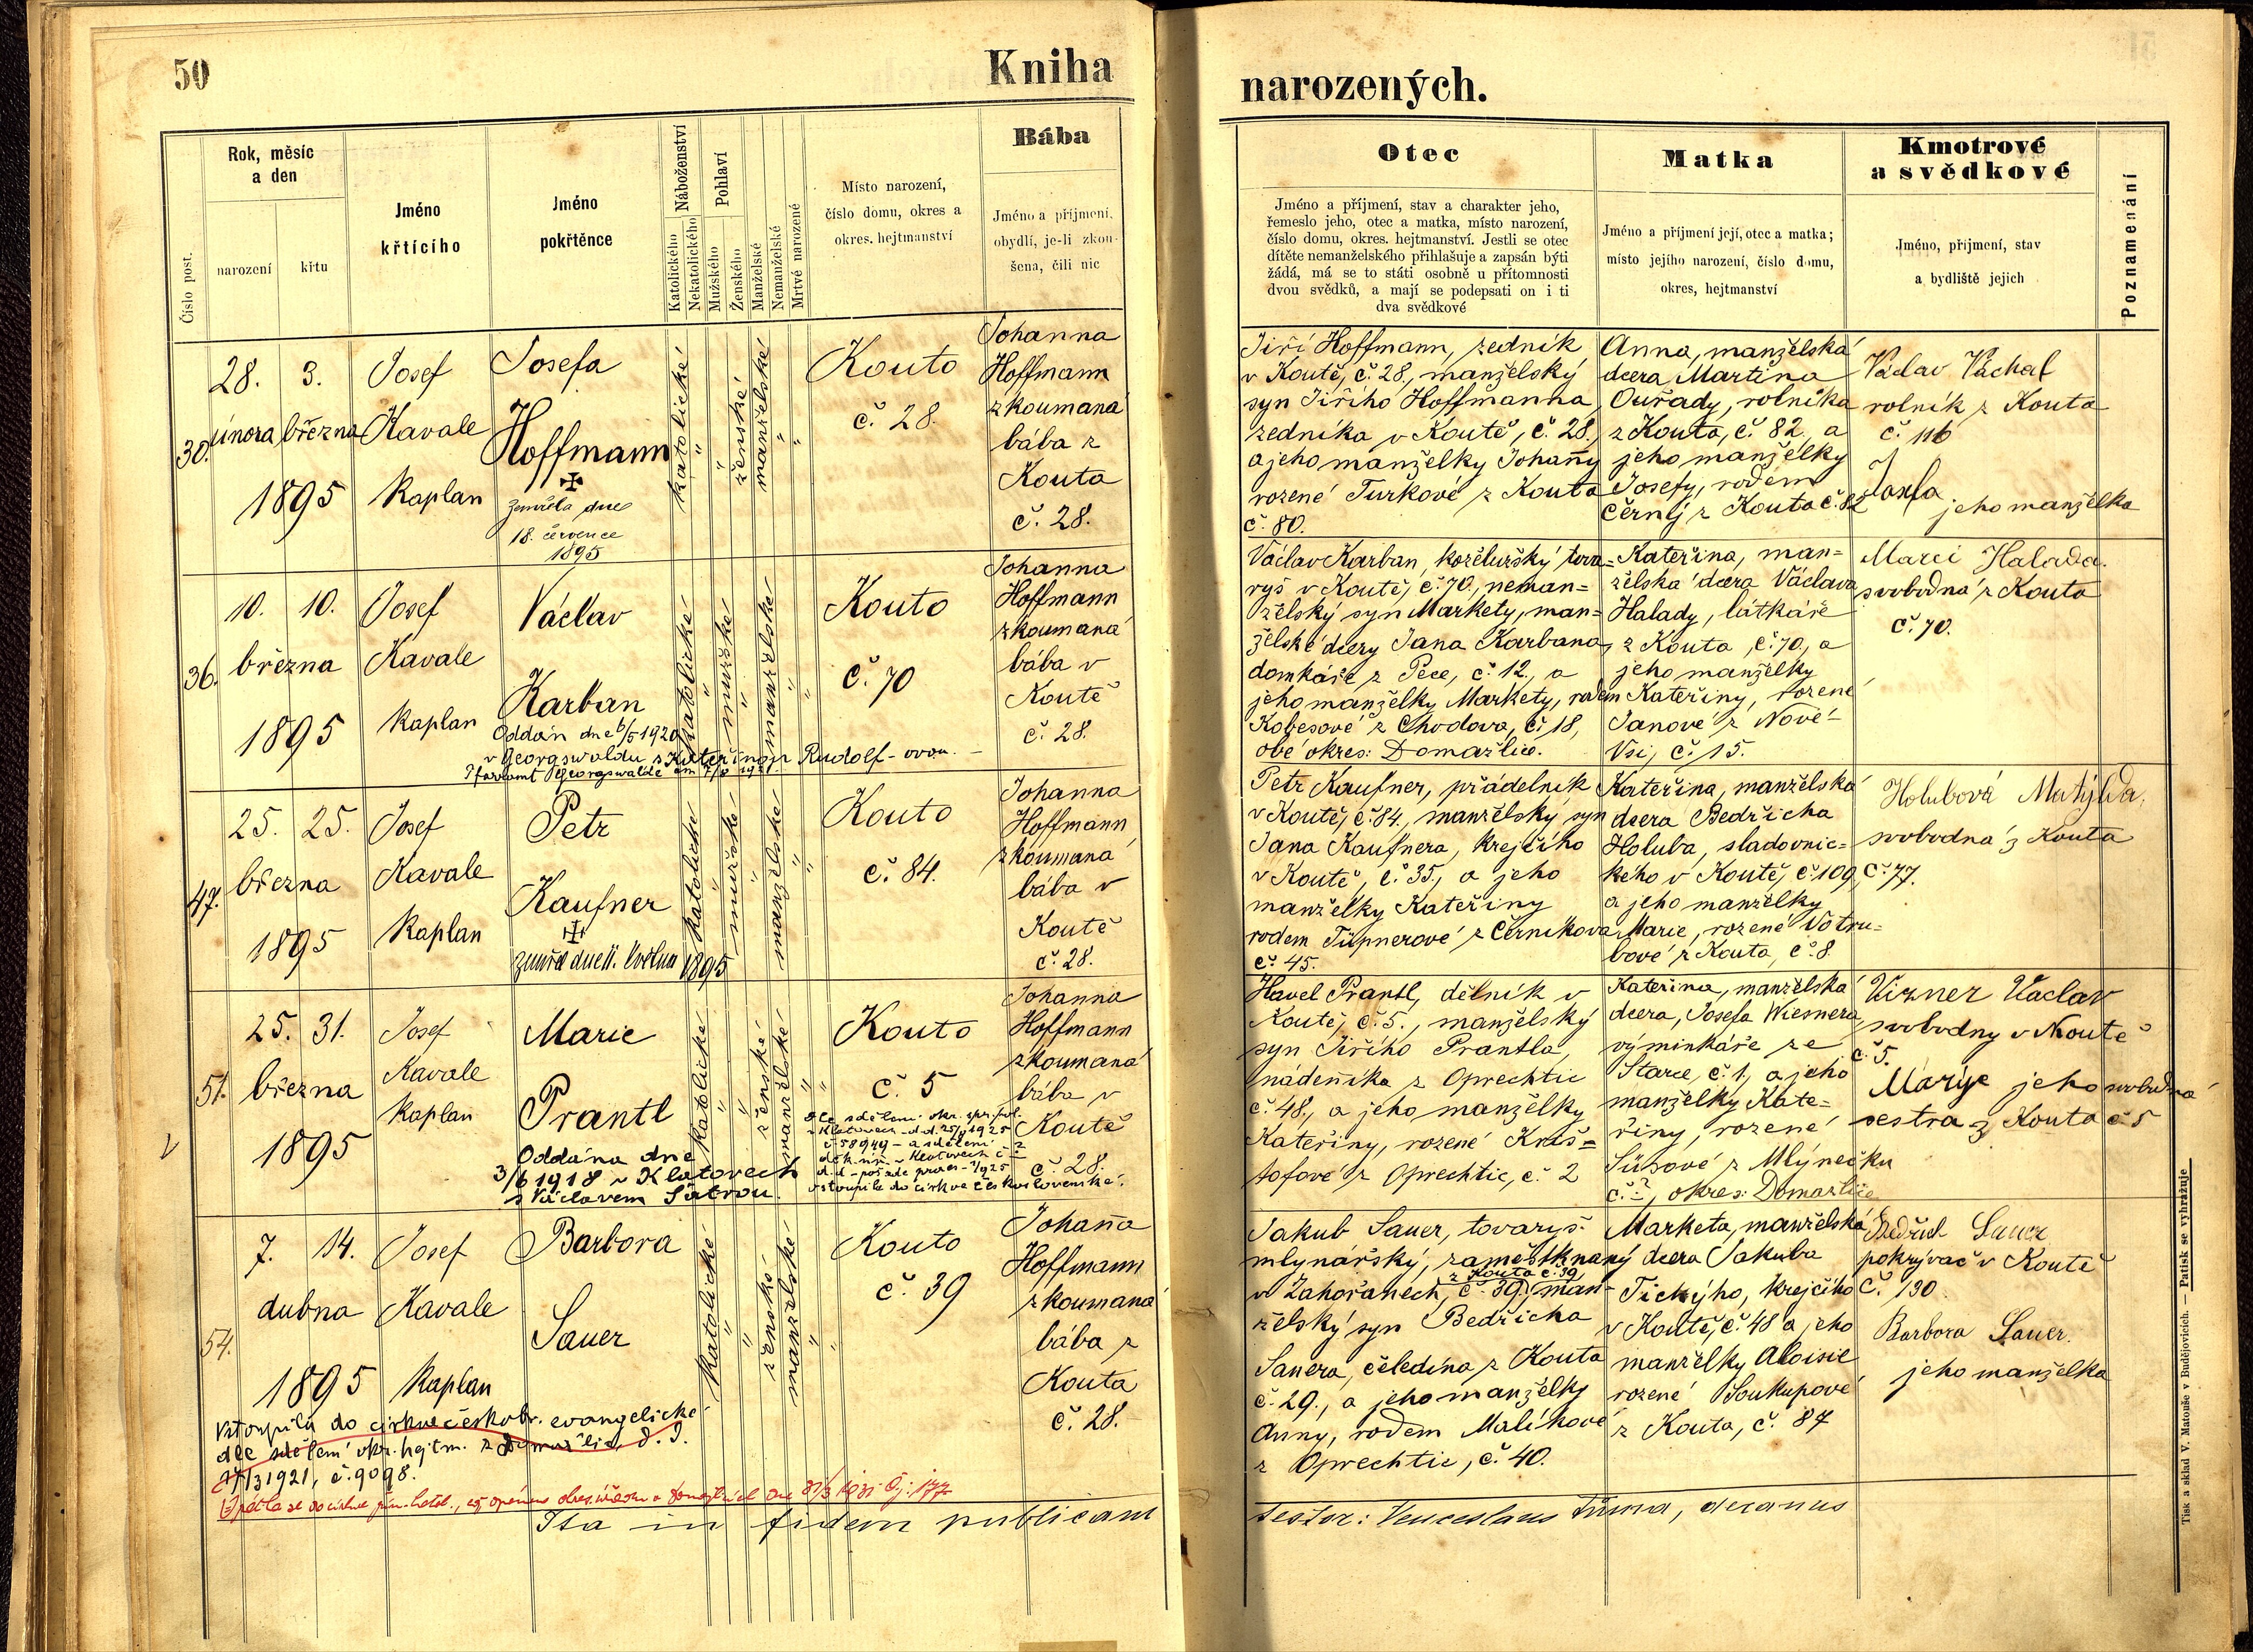 50
Kniha
Číslo post.
Rok, měsíc
a den
narození
křtu
Jméno
křtícího
Jméno
pokřtěnce
Náboženství
Katolického
Nekatolického
Pohlaví
Mužského
Ženského
Manželské
Nemanželské
Mrtvé narozené
Místo narození,
číslo domu, okres a
okres. hejtmanství
Bába
Jméno a příjmení,
obydlí, je-li zkou-
šena, čili nic
30.
28. 3.
února března
1895
Josef
Kavale
Kaplan
Josefa
Hoffmann
zemřela dne
18. července
1895
katolické
"
"
ženské
manželské
"
"
Kouto
č. 28.
Johanna
Hoffmann
zkoumaná
bába z
Kouta
č. 28.
36.
10. 10.
března
1895
Josef
Kavale
Kaplan
Václav
Karban
Oddán dne 6/5 1920
v Georgswaldu s Kateřinou Rudolf-ovou. –
Pfarramt Georgswalde
katolické
"
mužské
"
manželské
"
"
Kouto
č. 70
Johanna
Hoffmann
zkoumaná
bába v
Koutě
č. 28.
47.
25. 25.
března
1895
Josef
Kavale
Kaplan
Petr
Kaufner
zemřel dne 11. května 1895
katolické
"
mužské
"
manželské
"
"
Kouto
č. 84.
Johanna
Hoffmann
zkoumaná
bába v
Koutě
č. 28.
V
51.
25. 31.
března
1895
Josef
Kavale
Kaplan
Marie
Prantl
Oddána dne
3/6 1918 v Klatovech
s Václavem Šatrou.
katolické
"
"
ženské
manželské
"
"
Kouto
č. 5
Dle sdělení okr. spr. pol.
v Klatovech d.d. 25/9 1925
č. 58949 – a sdělení
vstoupila do církve československé.
Johanna
Hoffmann
zkoumaná
bába v
Koutě
č. 28.
54.
7. 14.
dubna
1895
Josef
Kavale
Kaplan
Barbora
Sauer
katolické
"
"
ženské
manželské
"
"
Kouto
č. 39
Johana
Hoffmann
zkoumaná
bába z
Kouta
č. 28.
Vstoupila do církve českobr. evangelické
dle sdělení okr. hejtm. z Domažlic, d. d.
17/3 1921, č. 9098.
Ita in fidem publicam
narozených.
Otec
Jméno a příjmení, stav a charakter jeho,
řemeslo jeho, otec a matka, místo narození,
číslo domu, okres. hejtmanství. Jestli se otec
dítěte nemanželského přihlašuje a zapsán býti
žádá, má se to státi osobně u přítomnosti
dvou svědků, a mají se podepsati on i ti
dva svědkové
Matka
Jméno a příjmení její, otec a matka;
místo jejího narození, číslo domu,
okres, hejtmanství
Kmotrové
a svědkové
Jméno, příjmení, stav
a bydliště jejich
Poznamenání
Jiří Hoffmann, zedník
v Koutě, č. 28., manželský
syn Jiřího Hoffmanna,
zedníka v Koutě, č. 28.
a jeho manželky Johany
rozené Turkové z Kouta
č. 80.
Anna, manželská
dcera Martina
Ouřady, rolníka
z Kouta, č. 82, a
jeho manželky
Josefy, rodem
Černý z Kouta č. 82
Václav Váchal
rolník z Kouta
č. 116
Josefa
jeho manželka
Václav Karban, koželužský tova-
ryš v Koutě, č. 70., neman-
želský syn Markety, man-
želské dcery Jana Karbana,
domkáře z Pece, č. 12., a
jeho manželky Markety, rodem
Kobesové z Chodova, č. 18,
obé okres: Domažlice.
Kateřina, man-
želská dcera Václava
Halady, látkaře
z Kouta, č. 70., a
jeho manželky
Kateřiny, rozené
Janové z Nové-
Vsi, č. 15.
Marei Halada.
svobodná z Kouta
č. 70.
Petr Kaufner, přádelník
v Koutě, č. 84., manželský syn
Jana Kaufnera, krejčího
v Koutě, č. 35., a jeho
manželky Kateřiny
rodem Tüpnerové z Černíkova
č. 45.
Kateřina, manželská
dcera Bedřicha
Holuba, sladovnic-
kého v Koutě, č. 109,
a jeho manželky
Marie, rozené Votru-
bové z Kouta, č. 8.
Holubová Matylda,
svobodná z Kouta
č. 77.
Havel Prantl, dělník v
Koutě, č. 5., manželský
syn Jiřího Prantla,
nádeníka z Oprechtic
č. 48., a jeho manželky
Kateřiny, rozené Kriš-
tofové z Oprechtic, č. 2
Kateřina, manželská
dcera, Josefa Wiesnera
výminkáře ze
Starce, č. 1, a jeho
manželky Kate-
řiny, rozené
Süsové z Mlýnečku
č. ?, okres: Domažlice
Vizner Vaclav
svobodny v Koutě
č. 5.
Marye jeho svobodná
sestra z Kouta č 5
Jakub Sauer, tovaryš
mlynářský, zaměstknaný
z Kouta č. 39
v Zahořanech, č. 39., man-
želský syn Bedřicha
Sauera, čeledína z Kouta
č. 29., a jeho manželky
Anny, rodem Malíkové
z Oprechtic, č. 40.
Marketa, manželská
dcera Jakuba
Tichýho, krejčího
v Koutě, č. 48 a jeho
manželky Aloisie
rozené Soukupové
z Kouta, č. 87
Bedřich Sauer
pokrývač v Koutě
č. 130
Barbora Sauer.
jeho manželka
testor: Venceslaus Tůma, decanus
Tisk a sklad V. Matouše v Budějovicích. — Patisk se vyhražuje